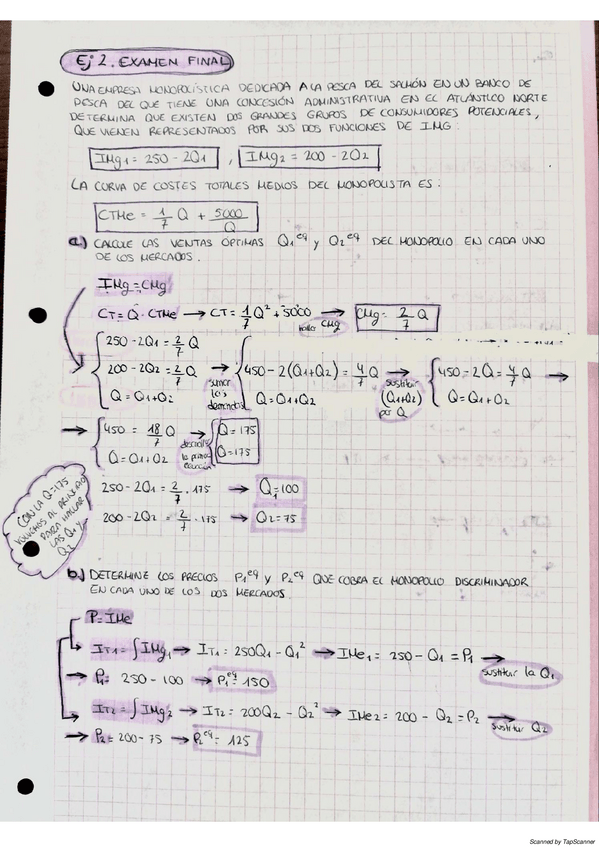 Ej 2. EXAMEN FINAL
UNA EMPRESA MONOPOLÍSTICA DEDICADA A LA PESCA DEL SALMÓN EN UN BANCO DE
PESCA DEL QUE TIENE UNA CONCESIÓN ADMINISTRATIVA EN EL ATLÁNTICO NORTE
DETERMINA QUE EXISTEN DOS GRANDES GRUPOS DE CONSUMIDORES POTENCIALES,
QUE VIENEN REPRESENTADOS POR SUS DOS FUNCIONES DE IMG:
IMg1 = 250 - 2Q1 , IMg2 = 200 - 2Q2
LA CURVA DE COSTES TOTALES MEDIOS DEL MONOPOLISTA ES:
CTMe = 1/7 Q + 5000/Q
a.) CALCULE LAS VENTAS ÓPTIMAS Q1^eq y Q2^eq DEL MONOPOLIO EN CADA UNO
DE LOS MERCADOS.
IMg = CMg
CT = Q · CTMe → CT = 1/7 Q² + 5000 → hallar CMg CMg = 2/7 Q
250 - 2Q1 = 2/7 Q
200 - 2Q2 = 2/7 Q → 450 - 2(Q1+Q2) = 4/7 Q → 450 = 2Q = 4/7 Q →
Q = Q1+Q2 sumar las demandas Q = Q1+Q2 sustituir (Q1+Q2) por Q Q = Q1+Q2
→ 450 = 18/7 Q → Q = 175
Q = Q1+Q2 Q = 175
CON LA Q=175 VOLVEMOS AL PRINCIPIO PARA HALLAR LAS Q1 Y Q2
250 - 2Q1 = 2/7 · 175 → Q1 = 100
200 - 2Q2 = 2/7 · 175 → Q2 = 75
b.) DETERMINE LOS PRECIOS P1^eq y P2^eq QUE COBRA EL MONOPOLIO DISCRIMINADOR
EN CADA UNO DE LOS DOS MERCADOS.
P = IMe
→ IT1 = ∫IMg1 → IT1 = 250Q1 - Q1² → IMe1 = 250 - Q1 = P1 → sustituir la Q1
→ P1 = 250 - 100 → P1^eq = 150
→ IT2 = ∫IMg2 → IT2 = 200Q2 - Q2² → IMe2 = 200 - Q2 = P2 → sustituir Q2
→ P2 = 200 - 75 → P2^eq = 125
Scanned by TapScanner